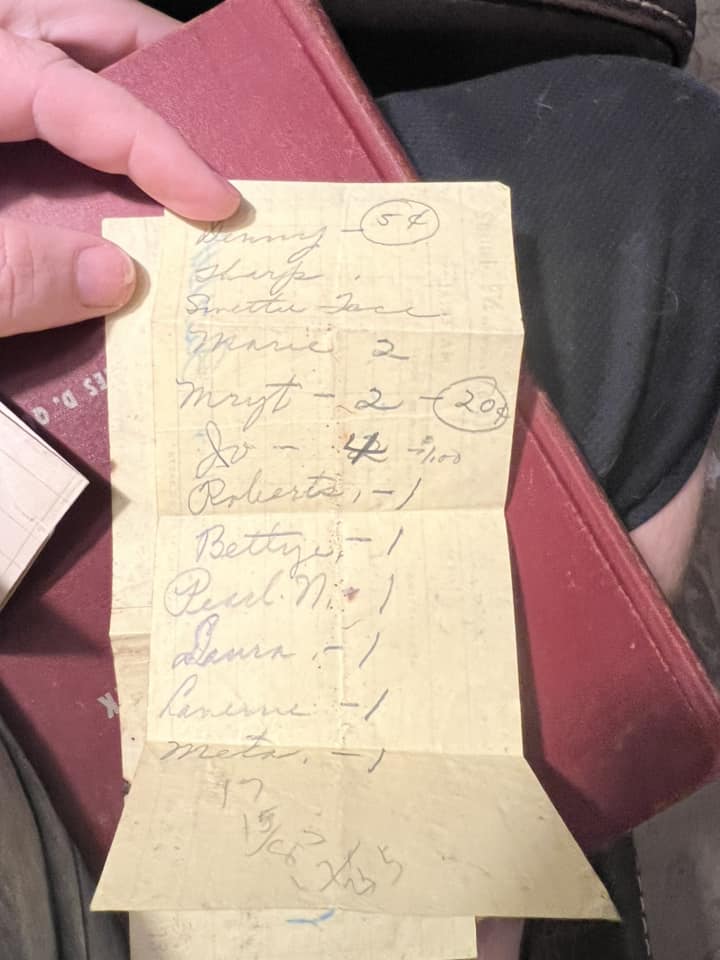 Denny - 5¢
Sharp .
Marie 2
Mryt - 2 - 20¢
Jo - 42 - $1.00
Roberts, - 1
Bettye, - 1
Pearl N. - 1
Laura . - 1
Laverne - 1
Meta, - 1
17
ES D. Q
K